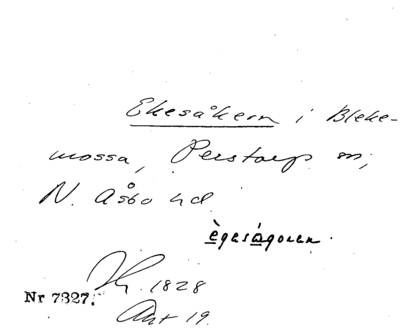 Ekesåkern i Bleke-
mossa, Perstorp sn,
N. Åsbo hd
ègesågoren.
1828
Nr 7327.
Ant 19.